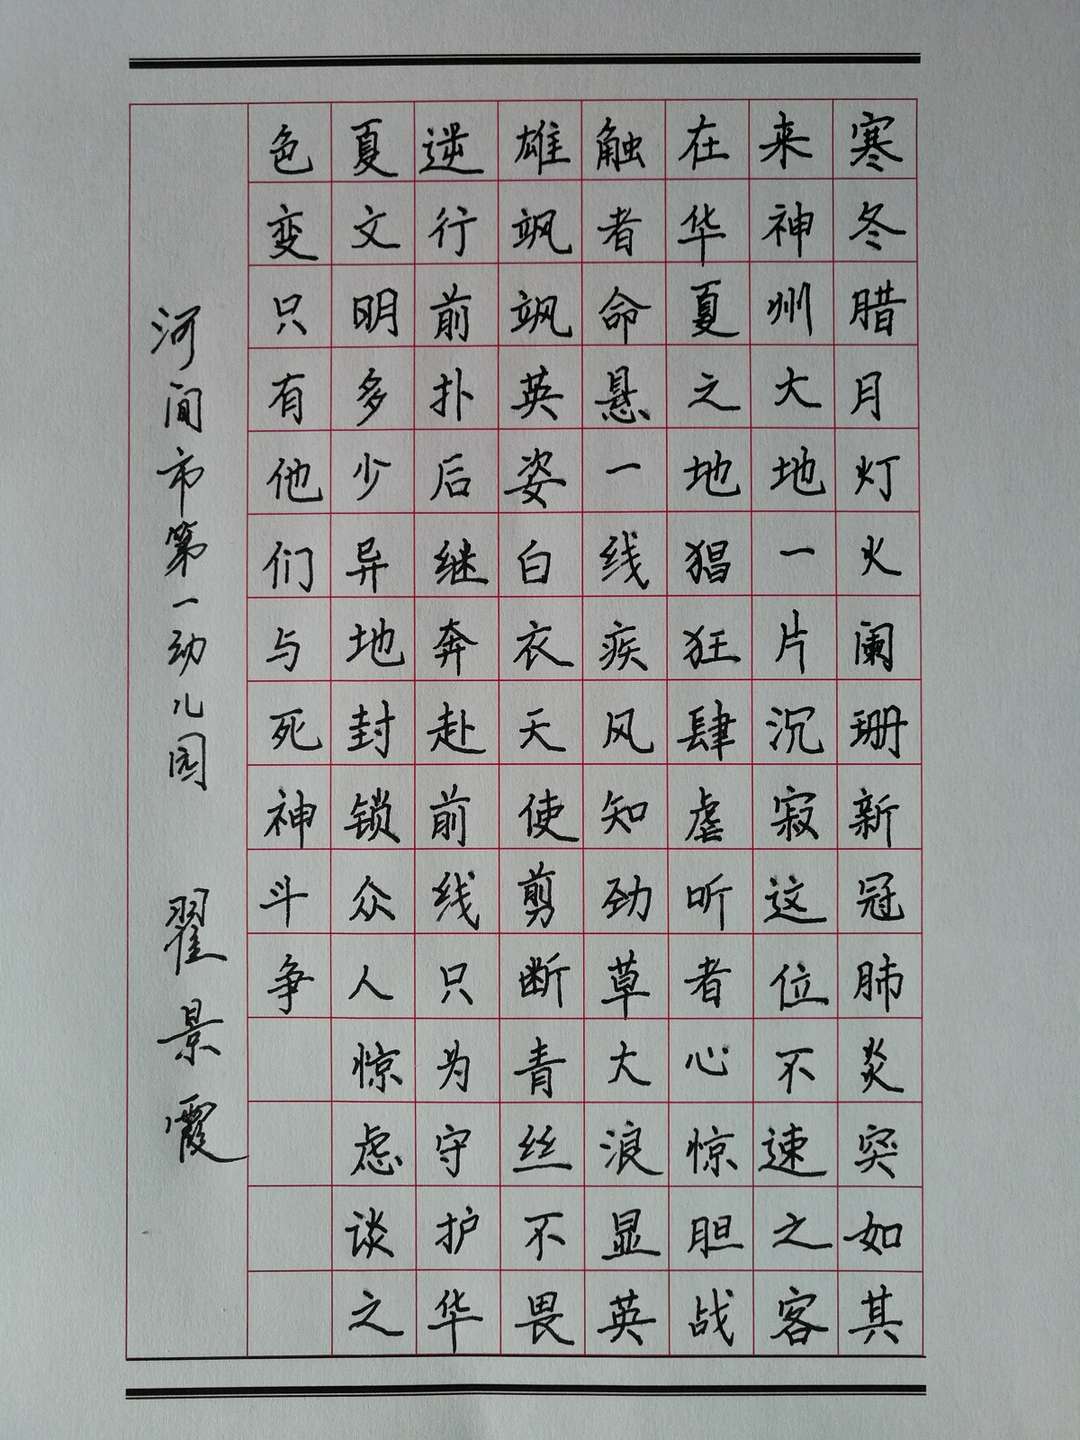 寒冬腊月灯火阑珊新冠肺炎突如其
来神州大地一片沉寂这位不速之客
在华夏之地猖狂肆虐听者心惊胆战
触者命悬一线疾风知劲草大浪显英
雄飒飒英姿白衣天使剪断青丝不畏
逆行前扑后继奔赴前线只为守护华
夏文明多少异地封锁众人惊虑谈之
色变只有他们与死神斗争
河间市第一幼儿园 翟景霞